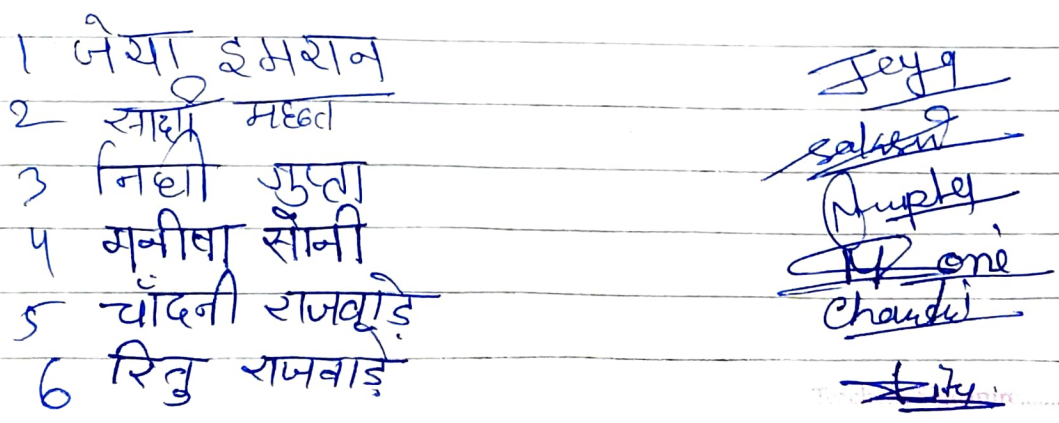 1 जेया इमरान Jeya
2 साक्षी महंत sakshi
3 निधी गुप्ता NGupta
4 मनीषा सोनी MSoni
5 चाँदनी राजवाड़े Chandni
6 रितु राजवाड़े Ritu